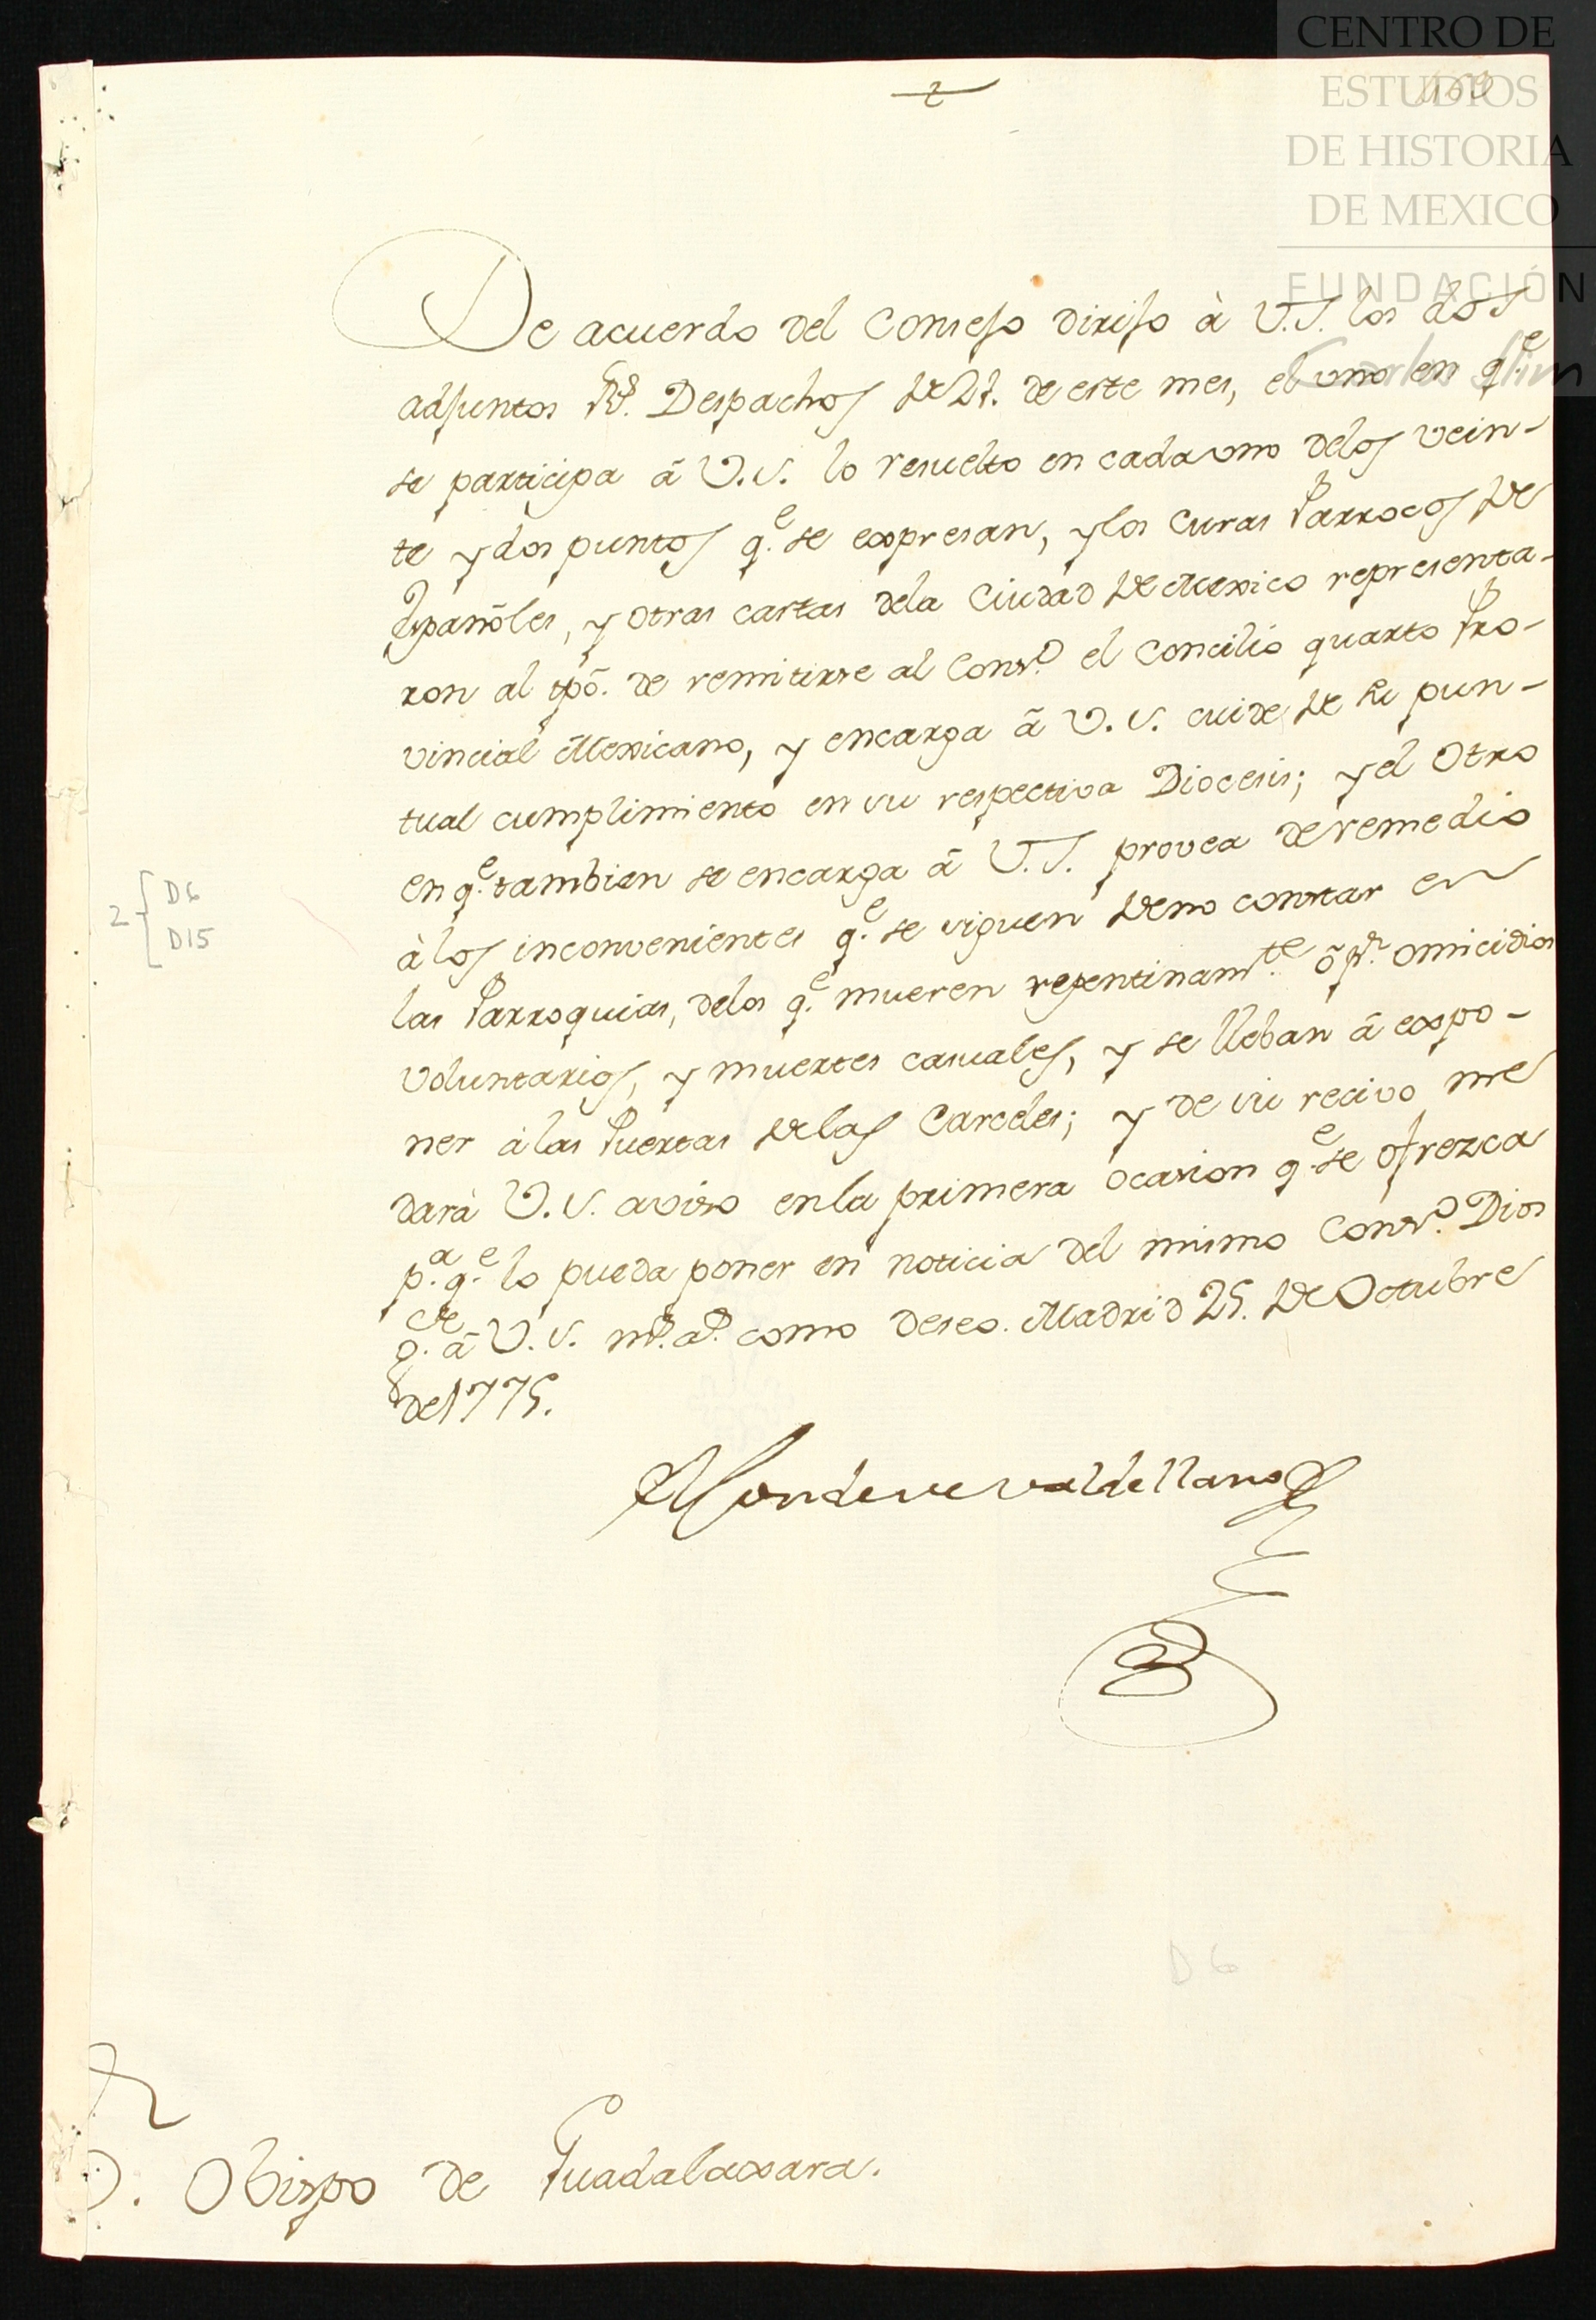 CENTRO DE
ESTUDIOS
DE HISTORIA
DE MEXICO
FUNDACIÓN
Carlos Slim
De acuerdo del Consejo dirijo à V.S. los dos
adjuntos Rs. Despachos de 21. de este mes, el uno en q.e
se participa â V.S. lo resuelto en cada uno delos vein-
te y dos puntos q.e se expresan, y los Curas Parrocos de
Españoles, y otras castas dela Ciudad de Mexico representa-
ron al tpõ. de remitirse al Cons.o el Concilio quarto Pro-
vincial Mexicano, y encarga â V.S. cuide de su pun-
tual cumplimiento en su respectiva Diocesis; y el otro
en q.e tambien se encarga â V.S. provea de remedio
à los inconvenientes q.e se siguen de no constar en
las Parroquias, delos q.e mueren repentinam.te ô p.r omicidios
voluntarios, y muertes casuales, y se lleban â expo-
ner à las Puertas de las Carceles; y de su recivo me
darà V.S. aviso en la primera ocasion q.e se ofrezca
p.a q.e lo pueda poner en noticia del mismo Cons.o Dios
g.de â V.S. m.s a.s como deseo. Madrid 25. de Octubre
de 1775.
El Conde de Valdellano
2 D6
D15
D6
S.r Obispo de Guadalaxara.